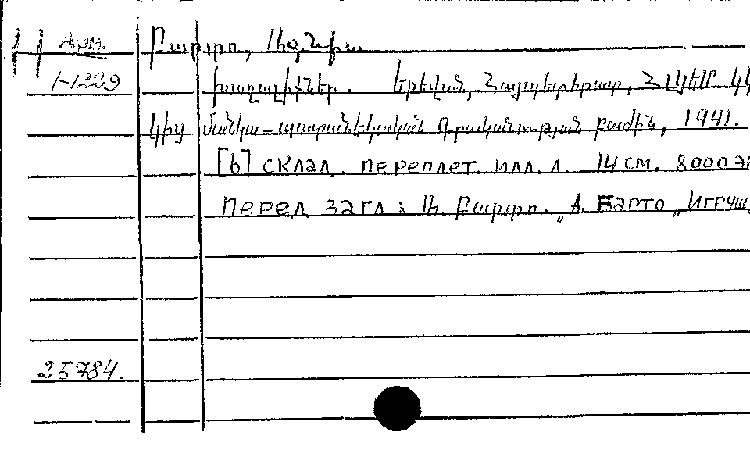 Арм. Բարտո, Ագնիա
1-1229 խաղալիքներ. Երեվան, Հայպետհրատ, ՀԼԿԵՄ ԿԿ
կից մանկա-պատանեկական գրականության բաժին, 1941.
[6] склад. переплет. илл. л. 14 см. 8000 э
Перед загл: Ա. Բարտո. „А. Барто „Игруш
25784.